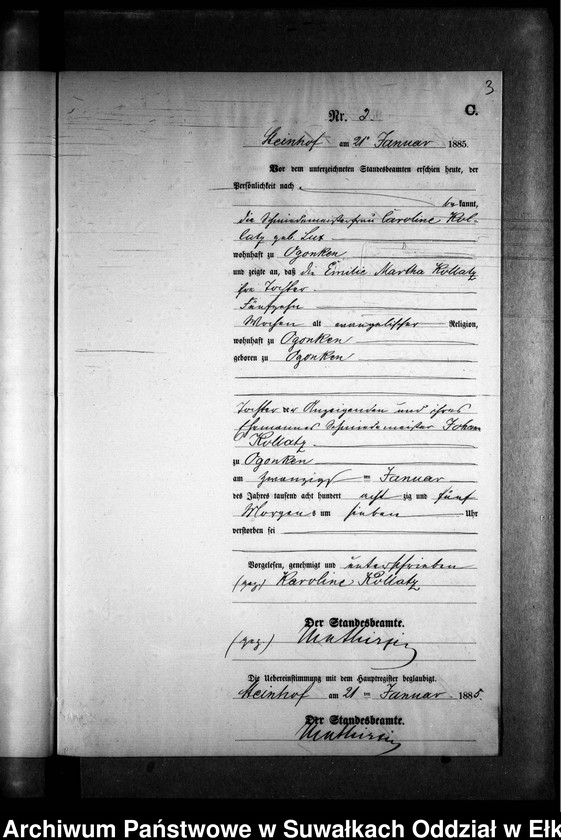 3
C.
Nr. 2.
Steinhof am 21 Januar 1885.
Vor dem unterzeichneten Standesbeamten erschien heute, der
Persönlichkeit nach
be kannt,
die Schmiedemeisterfrau Caroline Kol-
latz geb. Lux
wohnhaft zu Ogonken
und zeigte an, daß die Emilie Martha Kollatz
ihre Tochter
Fünfzehn
Wochen alt evangelischer Religion,
wohnhaft zu Ogonken
geboren zu Ogonken
Tochter der Anzeigenden und ihres
Ehemannes Schmiedemeister Johann
Kollatz
zu Ogonken
am zwanzigs ten Januar
des Jahres tausend acht hundert acht zig und fünf
Morgens um sieben Uhr
verstorben sei
Vorgelesen, genehmigt und unterschrieben
(gez) Karoline Kollatz
Der Standesbeamte.
(gez.)
Die Uebereinstimmung mit dem Hauptregister beglaubigt.
Steinhof am 21 ten Januar 1885.
Der Standesbeamte.
Archiwum Państwowe w Suwałkach Oddział w Ełk